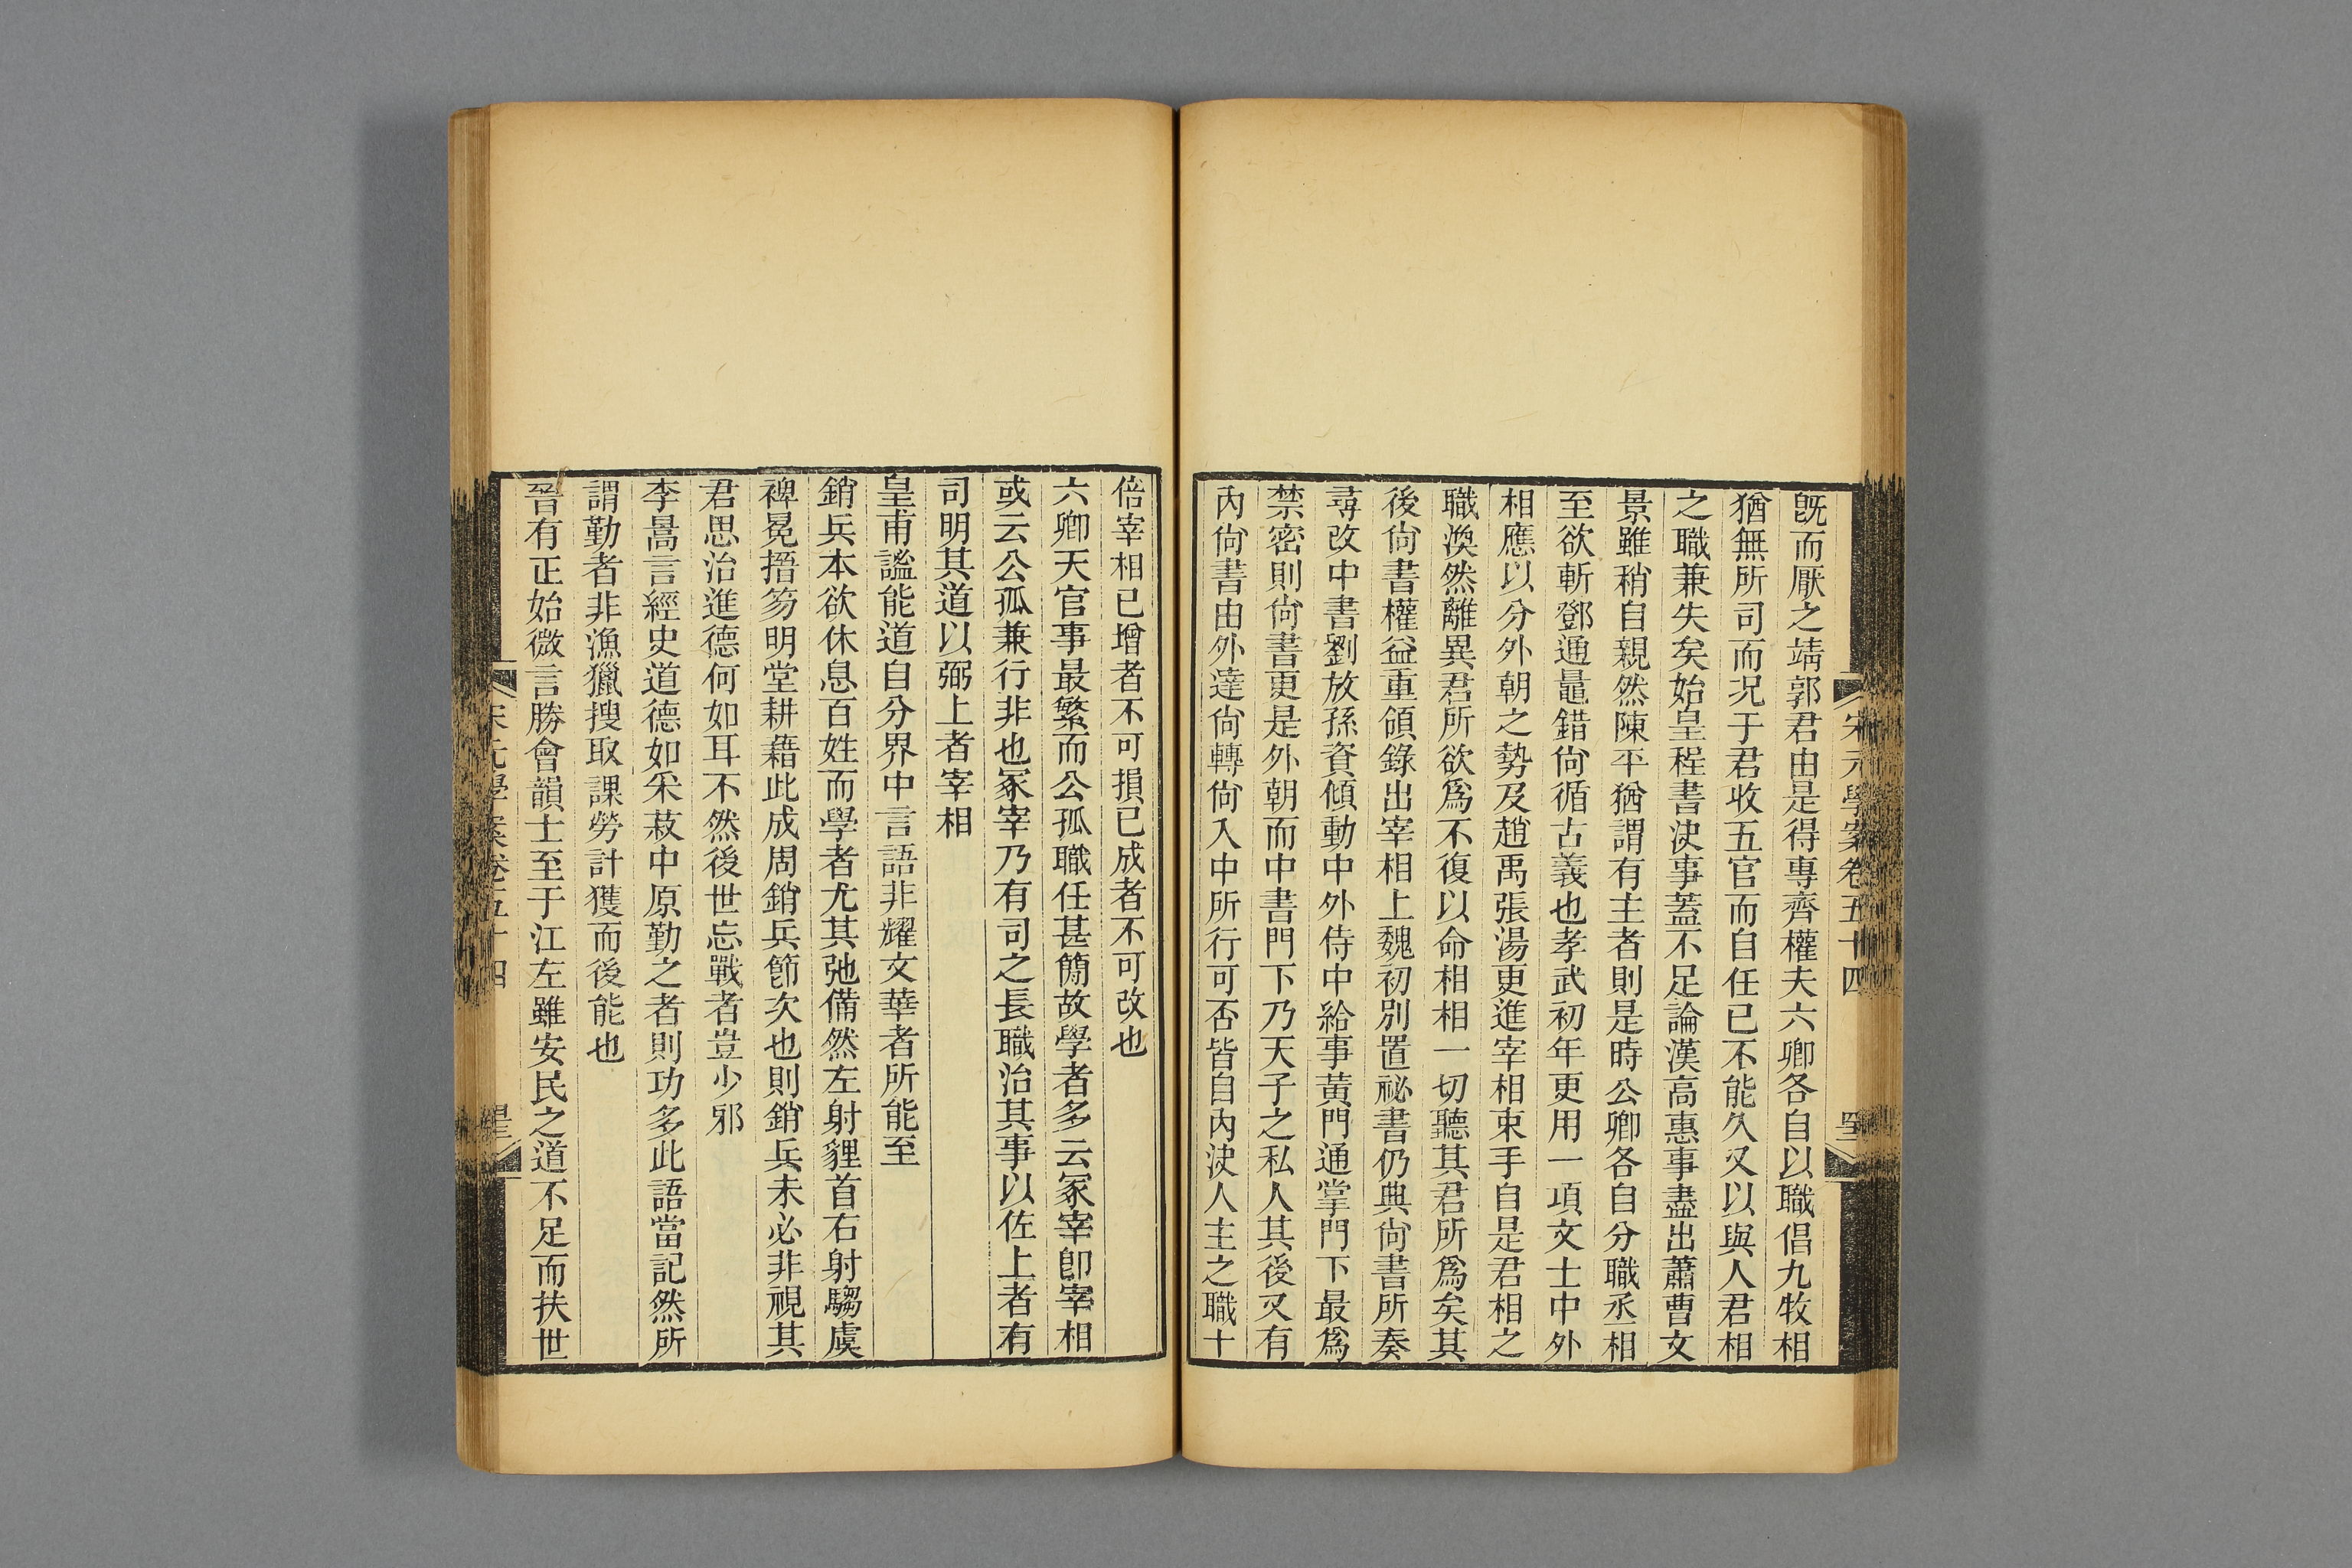 宋元學案卷五十四
既而厭之靖郭君由是得專齊權夫六卿各自以職倡九牧相
猶無所司而况于君收五官而自任已不能久又以與人君相
之職兼失矣始皇程書決事蓋不足論漢高惠事盡出蕭曹文
景雖稍自親然陳平猶謂有主者則是時公卿各自分職丞相
至欲斬鄧通鼂錯尙循古義也孝武初年更用一項文士中外
相應以分外朝之勢及趙禹張湯更進宰相束手自是君相之
職渙然離異君所欲爲不復以命相相一切聽其君所爲矣其
後尙書權益重領錄出宰相上魏初別置祕書仍典尙書所奏
尋改中書劉放孫資傾動中外侍中給事黃門通掌門下最爲
禁密則尙書更是外朝而中書門下乃天子之私人其後又有
內尙書由外達尙轉尙入中所行可否皆自內決人主之職十
倍宰相已增者不可損已成者不可改也
六卿天官事最繁而公孤職任甚簡故學者多云冢宰卽宰相
或云公孤兼行非也冢宰乃有司之長職治其事以佐上者有
司明其道以弼上者宰相
皇甫謐能道自分界中言語非耀文華者所能至
銷兵本欲休息百姓而學者尤其弛備然左射貍首右射騶虞
裨冕搢笏明堂耕藉此成周銷兵節次也則銷兵未必非視其
君思治進德何如耳不然後世忘戰者豈少邪
李暠言經史道德如采菽中原勤之者則功多此語當記然所
謂勤者非漁獵搜取課勞計獲而後能也
晉有正始微言勝會韻士至于江左雖安民之道不足而扶世
宋元學案卷五十四